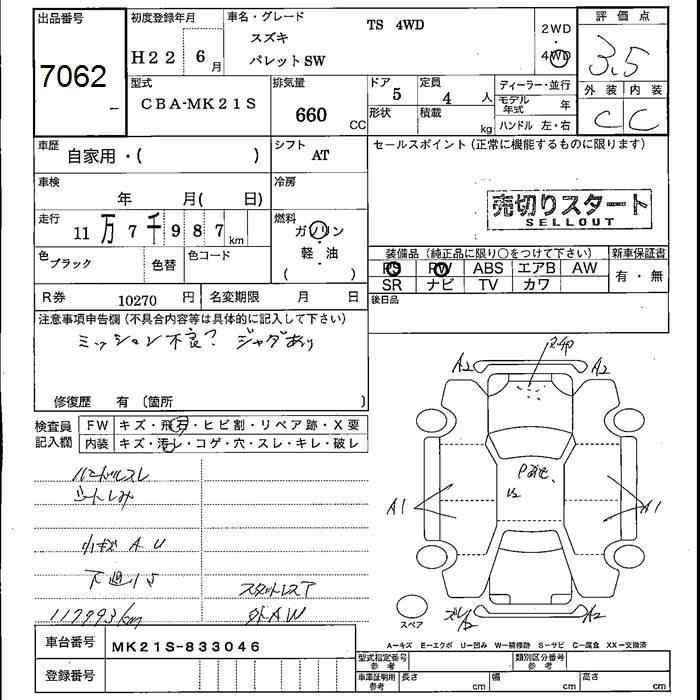 出品番号
7062
初度登録年月
H22 6月
車名・グレード
スズキ
パレットSW
TS 4WD
2WD
4WD
評価点
3.5
外装 内装
C C
型式
CBA-MK21S
排気量
660 CC
ドア
5
定員
4 人
形状
積載 kg
ディーラー・並行
モデル年式 年
ハンドル 左・右
車歴
自家用・( )
シフト
AT
セールスポイント(正常に機能するものに限ります)
車検
年 月( 日)
冷房
売切りスタート
SELLOUT
走行
11万7千987km
燃料
ガソリン
・
軽・油
( )
色
ブラック
色替
色コード
装備品(純正品に限り○をつけて下さい)
PS PW ABS エアB AW
SR ナビ TV カワ
新車保証書
有・無
R券 10270 円
名変期限 月 日
後日品
注意事項申告欄(不具合内容等は具体的に記入して下さい)
ミッション不良? ジャダあり
修復歴 有(箇所 )
検査員記入欄
FW キズ・飛石・ヒビ割・リペア跡・X要
内装 キズ・汚レ・コゲ・穴・スレ・キレ・破レ
ハンドルスレ
シートしみ
小キズ AU
下廻りS
117993km
スタットレスT
外AW
A2 A2
A1 A1
A2
スペア
A-キズ E-エクボ U-凹み W-補修跡 S-サビ C-腐食 XX-交換済
車台番号
MK21S-833046
登録番号
型式指定番号参考
類別区分番号参考
車庫証明用参考
長さ cm
幅 cm
高さ cm